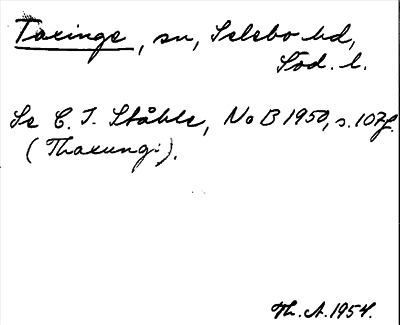 Taxinge, sn, Selebo hd,
Söd. l.
Se C. I. Ståhle, NoB 1950, s. 107f.
(Thaxungi).
Th. A. 1954.